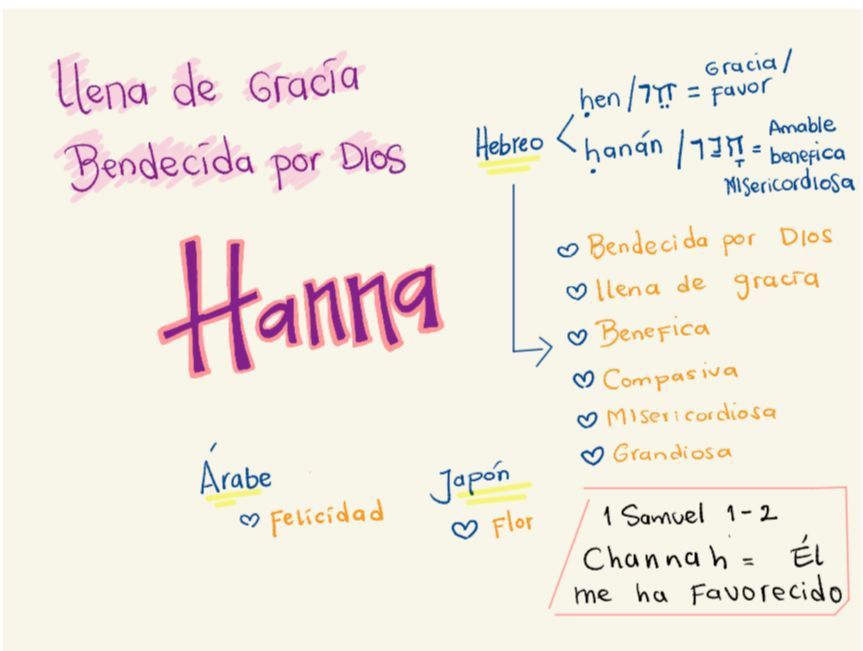 Llena de Gracia
Bendecida por Dios
Hanna
Hebreo
ḥen / חֵן = Gracia / Favor
ḥanán / חָנַן = Amable
benefica
Misericordiosa
Bendecida por Dios
llena de gracia
Benefica
Compasiva
Misericordiosa
Grandiosa
Árabe
Felicidad
Japón
Flor
1 Samuel 1-2
Channah = Él
me ha Favorecido